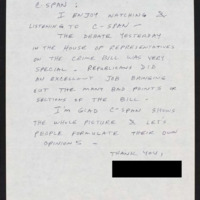 C-SPAN:
I ENJOY WATCHING &
LISTENING TO C-SPAN -
THE DEBATE YESTERDAY
IN THE HOUSE OF REPRESENTATIVES
ON THE CRIME BILL WAS VERY
SPECIAL. REPUBLICANS DID
AN EXCELLENT JOB BRINGING
OUT THE MANY BAD POINTS &
SECTIONS OF THE BILL.
I'M GLAD C-SPAN SHOWS
THE WHOLE PICTURE & LET'S
PEOPLE FORMULATE THEIR OWN
OPINIONS -
THANK YOU,